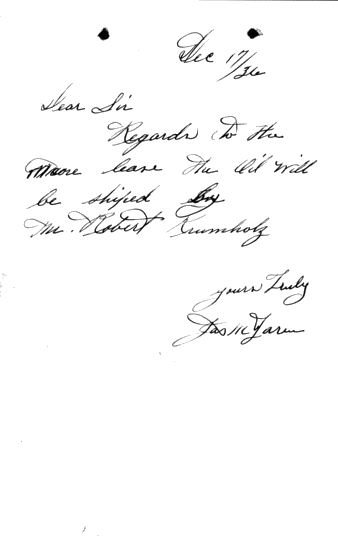 Dec 17/36
Dear Sir
Regards to the
Moore lease the Oil will
be shiped by
Mr. Robert Krumholz
yours Truly
Jas M